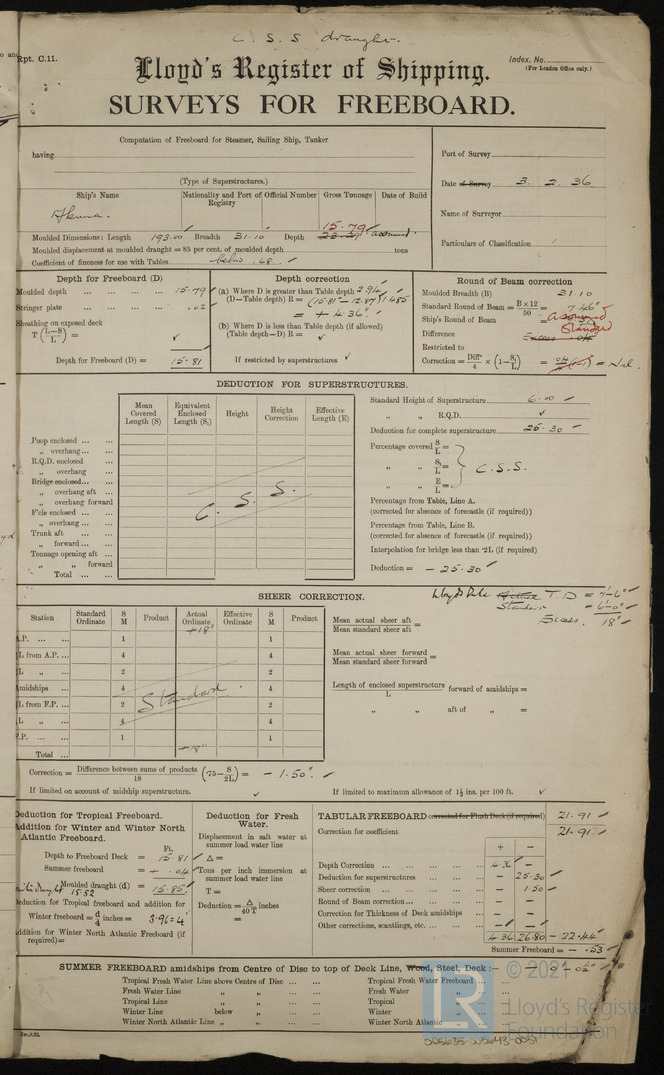 C. S. S. draught.
Rpt. C.11.
Index. No.
(For London Office only.)
Lloyd's Register of Shipping.
SURVEYS FOR FREEBOARD.
Computation of Freeboard for Steamer, Sailing Ship, Tanker
having
(Type of Superstructures.)
Port of Survey
Date of Survey 3. 2. 36
Name of Surveyor
Particulars of Classification
Ship's Name
Nationality and Port of Registry
Official Number
Gross Tonnage
Date of Build
15.79
Moulded Dimensions: Length 193.00 Breadth 31.10 Depth assumed
Moulded displacement at moulded draught = 85 per cent. of moulded depth tons
Coefficient of fineness for use with Tables below .68
Depth for Freeboard (D)
Moulded depth 15.79
Stringer plate .02
Sheathing on exposed deck
T (L-S/L) =
Depth for Freeboard (D) = 15.81
Depth correction
(a) Where D is greater than Table depth 2.94
(D-Table depth) R = (15.81 - 12.87) 1.485
= + 4.36".
(b) Where D is less than Table depth (if allowed)
(Table depth-D) R =
If restricted by superstructures
Round of Beam correction
Moulded Breadth (B) 31.10
Standard Round of Beam = B×12/50 = 7.46"
Ship's Round of Beam = assumed
Difference Standard
Restricted to
Correction = Diff/4 × (1 - S₁/L) = = Nil.
DEDUCTION FOR SUPERSTRUCTURES.
Mean Covered Length (S)
Equivalent Enclosed Length (S₁)
Height
Height Correction
Effective Length (E)
Poop enclosed
„ overhang
R.Q.D. enclosed
„ overhang
Bridge enclosed
„ overhang aft
„ overhang forward
F'cle enclosed
„ overhang
Trunk aft
„ forward
Tonnage opening aft
„ „ forward
Total
C. S. S.
Standard Height of Superstructure 6.00
„ „ R.Q.D.
Deduction for complete superstructure 25.30
Percentage covered S/L =
„ „ S₁/L = C.S.S.
„ „ E/L =
Percentage from Table, Line A.
(corrected for absence of forecastle (if required))
Percentage from Table, Line B.
(corrected for absence of forecastle (if required))
Interpolation for bridge less than ·2L (if required)
Deduction = - 25.30
SHEER CORRECTION.
T.D = 7'-6"
Standard = 6'-0"
Excess. 18"
Station
Standard Ordinate
S M
Product
Actual Ordinate
Effective Ordinate
S M
Product
+18"
A.P. 1 1
L from A.P. 4 4
L „ 2 2
Amidships 4 4
L from F.P. 2 2
L „ 4 4
F.P. 1 1
Standard.
+18"
Total
Mean actual sheer aft / Mean standard sheer aft =
Mean actual sheer forward / Mean standard sheer forward =
Length of enclosed superstructure / L forward of amidships =
„ „ aft of „ =
Correction = Difference between sums of products / 18 (·75 - S/2L) = - 1.50".
If limited on account of midship superstructure.
If limited to maximum allowance of 1½ ins. per 100 ft.
Deduction for Tropical Freeboard.
Addition for Winter and Winter North Atlantic Freeboard.
Ft.
Depth to Freeboard Deck = 15.81
Summer freeboard = - .04
Moulded draught (d) = 15.85
15.52
Deduction for Tropical freeboard and addition for
Winter freeboard = d/4 inches = 3.96 = 4"
Addition for Winter North Atlantic Freeboard (if required) =
Deduction for Fresh Water.
Displacement in salt water at summer load water line
Δ =
Tons per inch immersion at summer load water line
T =
Deduction = Δ/40 T inches
=
TABULAR FREEBOARD corrected for Flush Deck (if required) 21.91
Correction for coefficient 21.91
+ -
Depth Correction 4.36 -
Deduction for superstructures - 25.30
Sheer correction - 1.50
Round of Beam correction - -
Correction for Thickness of Deck amidships - -
Other corrections, scantlings, etc. - -
4.36 26.80 - 22.44
Summer Freeboard = - .53
SUMMER FREEBOARD amidships from Centre of Disc to top of Deck Line, Wood, Steel, Deck :-
Tropical Fresh Water Line above Centre of Disc
Fresh Water Line „ „
Tropical Line „ „
Winter Line below „
Winter North Atlantic Line „ „
Tropical Fresh Water Freeboard
Fresh Water „
Tropical „
Winter „
Winter North Atlantic „
© 2021
LR
Lloyd's Register
Foundation
005635-005643-0051